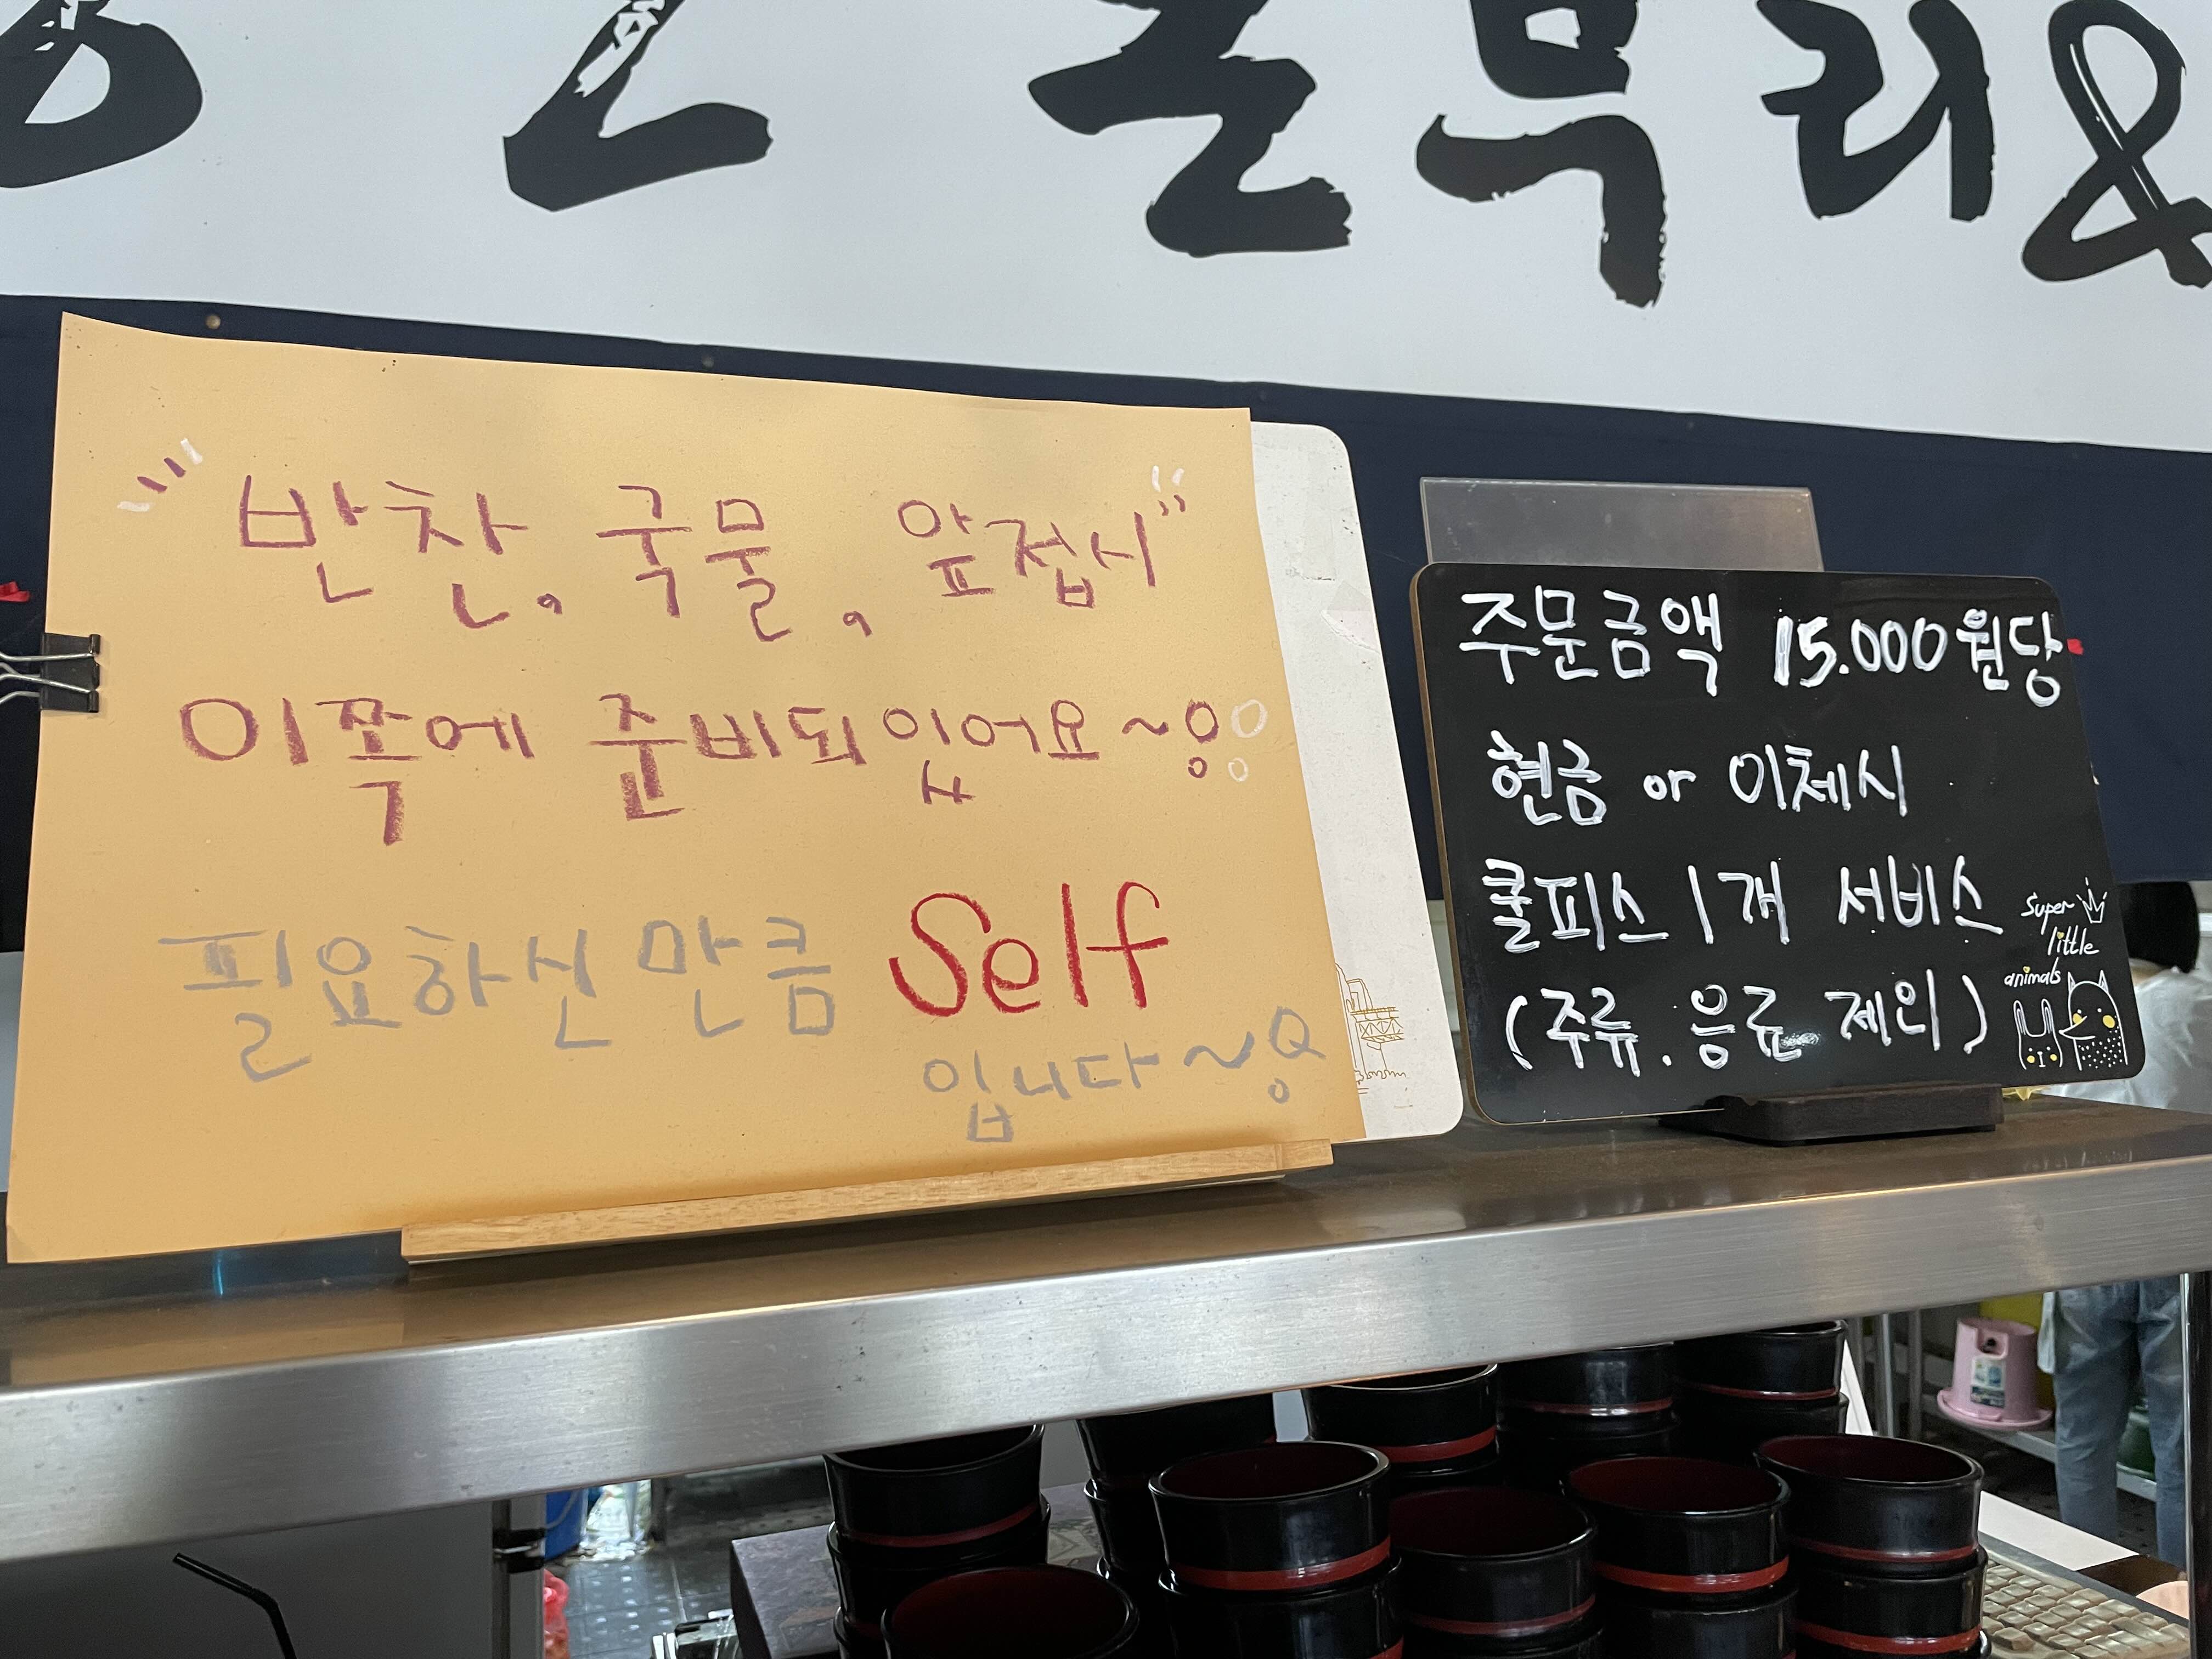 주먹&
"반찬, 국물, 앞접시"
이쪽에 준비되있어요~!!
필요하신 만큼 Self
입니다~!
주문금액 15.000원당
현금 or 이체시
쿨피스 1개 서비스
(주류.음료 제외)
Super
little
animals